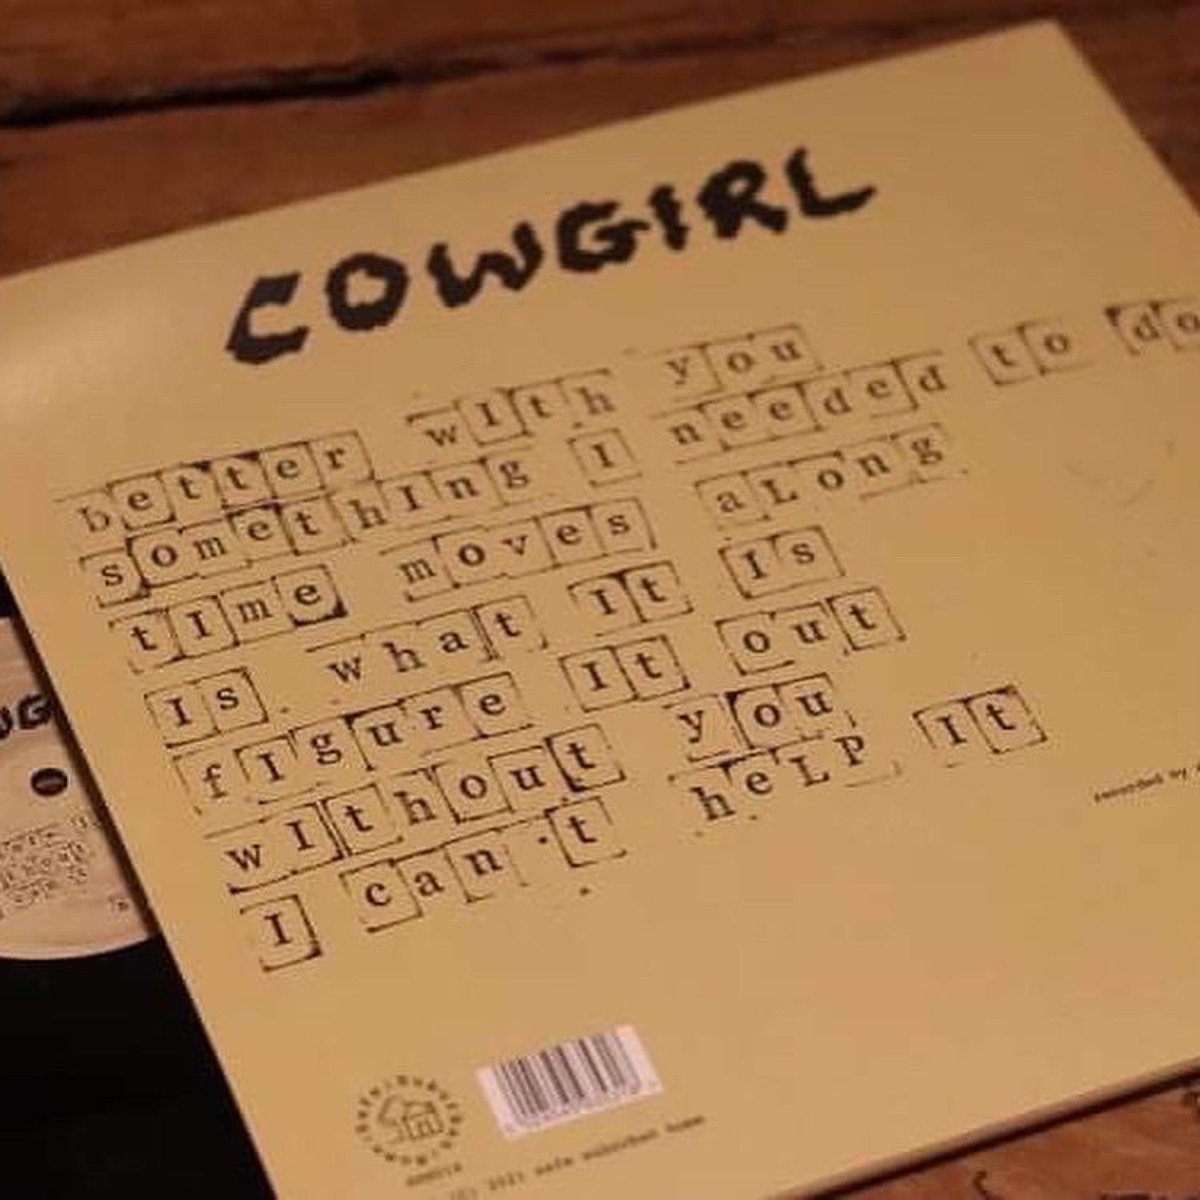 COWGIRL
better wIth you
somethIng I needed to do
tIme moves aLong
Is what It Is
fIgure It out
wIthout you
I can't heLP It
recorded by
(C) 2021 safe suburban home